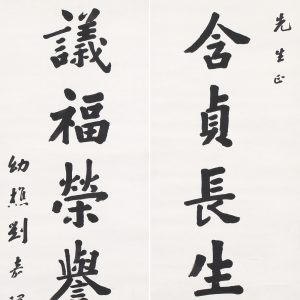 先生正
含貞長生
議福榮譽
幼樵劉嘉